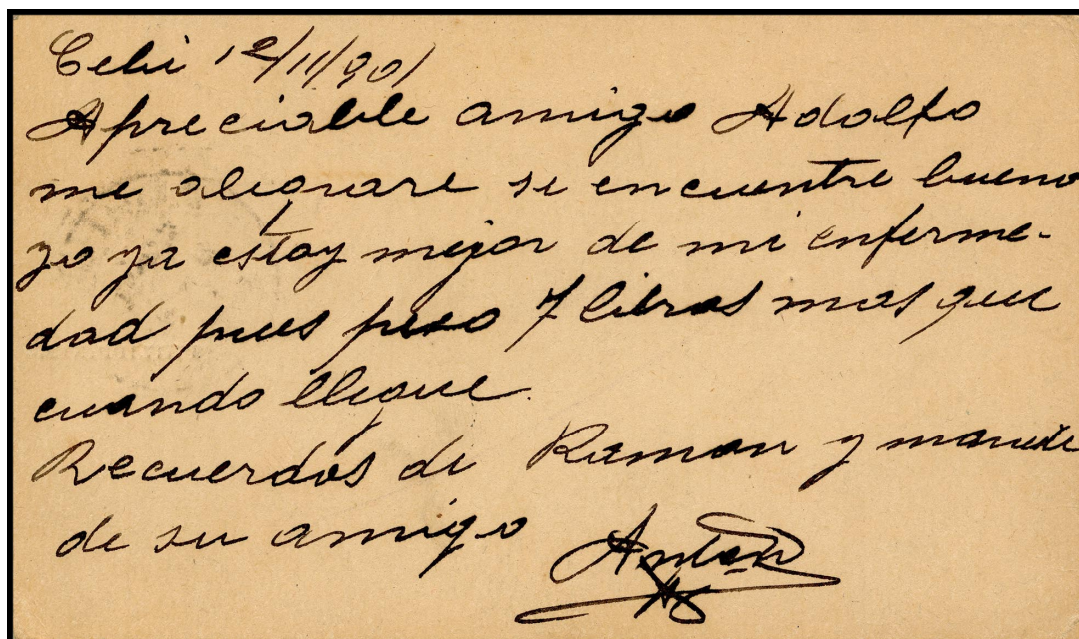 Cebú 12/11/901
Apreciable amigo Adolfo
me alegrare se encuentre bueno
yo ya estoy mejor de mi enferme-
dad pues peso 7 libras mas que
cuando llegue.
Recuerdos de Ramon y
de su amigo